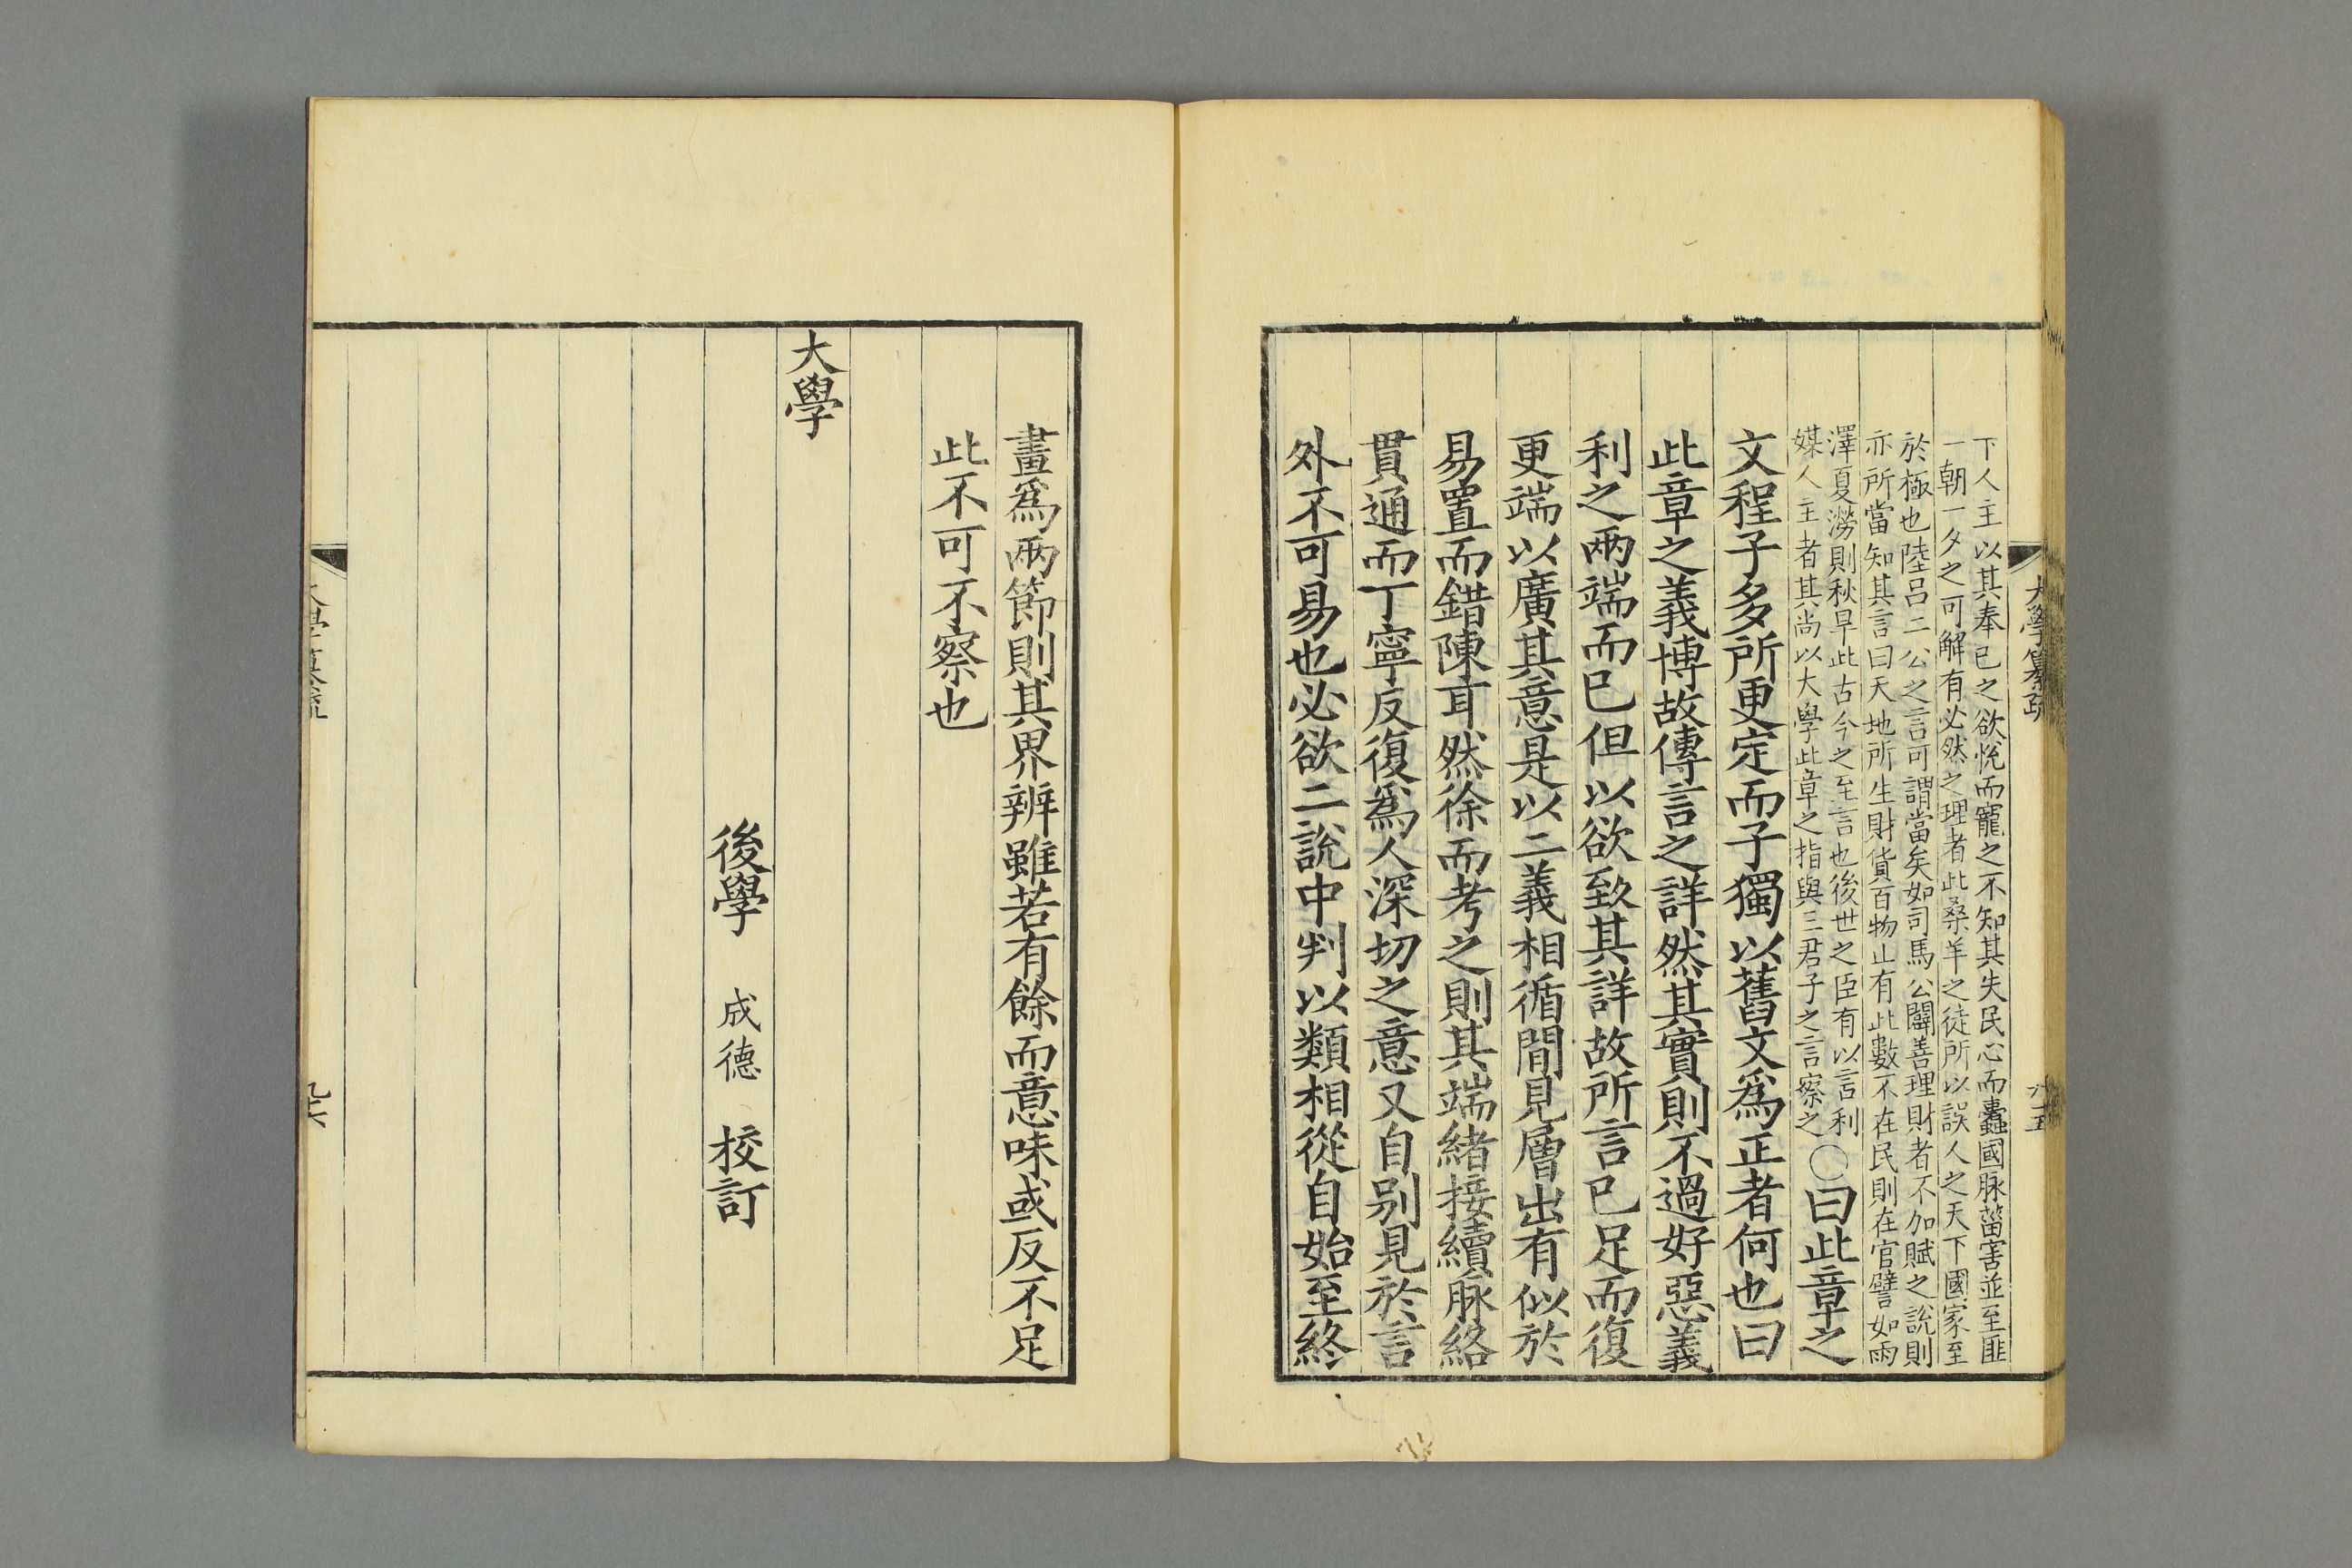 大學纂疏
下人主以其奉已之欲悅而寵之不知其失民心而蠹國脉菑害並至匪
一朝一夕之可解有必然之理者此桑羊之徒所以誤人之天下國家至
於極也陸呂二公之言可謂當矣如司馬公闢善理財者不加賦之說則
亦所當知其言曰天地所生財貨百物止有此數不在民則在官譬如雨
澤夏澇則秋旱此古今之至言也後世之臣有以言利
媒人主者其尚以大學此章之指與三君子之言察之
○曰此章之
文程子多所更定而子獨以舊文爲正者何也曰
此章之義博故傳言之詳然其實則不過好惡義
利之兩端而已但以欲致其詳故所言已足而復
更端以廣其意是以二義相循間見層出有似於
易置而錯陳耳然徐而考之則其端緒接續脉絡
貫通而丁寧反復爲人深切之意又自別見於言
外不可易也必欲二說中判以類相從自始至終
畫爲兩節則其界辨雖若有餘而意味或反不足
此不可不察也
大學
後學 成德 校訂